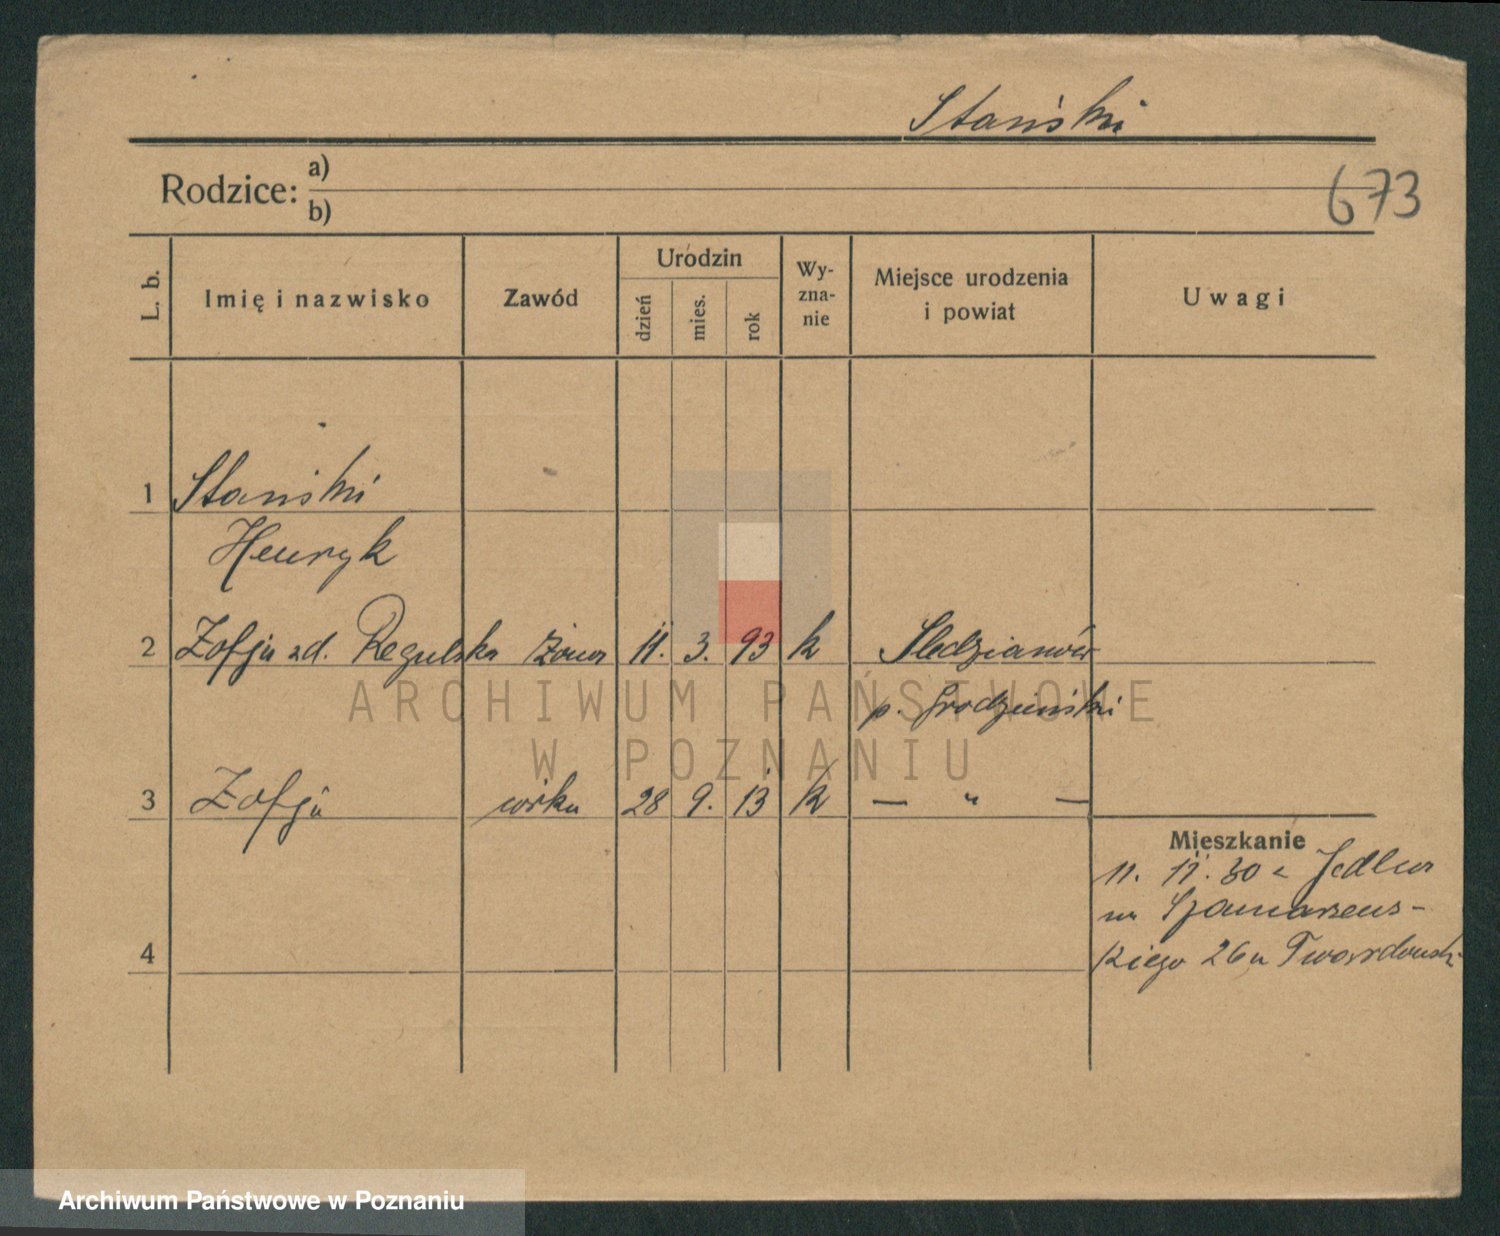 Stański
Rodzice: a)
b)
673
L. b.
Imię i nazwisko
Zawód
Urodzin
dzień
mies.
rok
Wy-
zna-
nie
Miejsce urodzenia
i powiat
Uwagi
1 Stański
Henryk
2 Zofja zd. Regulska żona 11. 3. 93 k Sledzianów
p. Grodzieński
ARCHIWUM PAŃSTWOWE
W POZNANIU
3 Zofja córka 28 9. 13 k — " —
Mieszkanie
11. 11. 30 z Jedlca
na Szamarzews-
kiego 26 u Twardowsk.
4
Archiwum Państwowe w Poznaniu